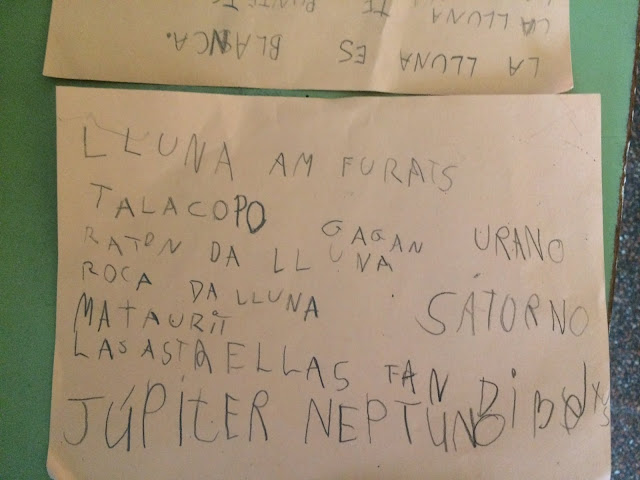 LA LLUNA ES BLANCA.
LA LLUNA TE
LLUNA AM FURATS
TALACOPO
GAGAN URANO
RATON DA LLUNA
ROCA DA LLUNA
SATORNO
MATAURIT
LAS ASTRELLAS FAN DIBOXUS
JÚPITER NEPTUNO